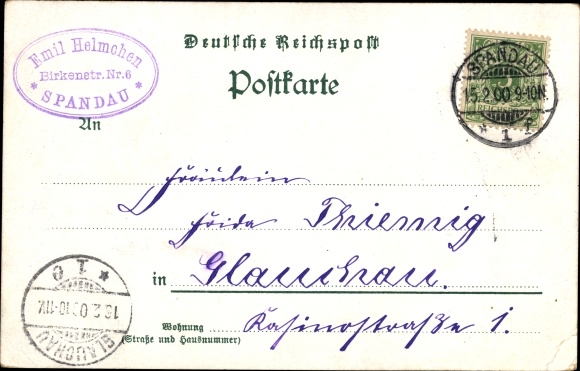 Emil Helmchen
Birkenstr. Nr. 6
* SPANDAU *
Deutsche Reichspost
Postkarte
SPANDAU
15.2.00.9-10N.
* 1 f
REICHSPOST
An
Fräulein
Frida Thiemig
in Glauchau.
Wohnung Kasinostraße 1.
(Straße und Hausnummer)
GLAUCHAU
16.2.00.10-11V.
* 1 e